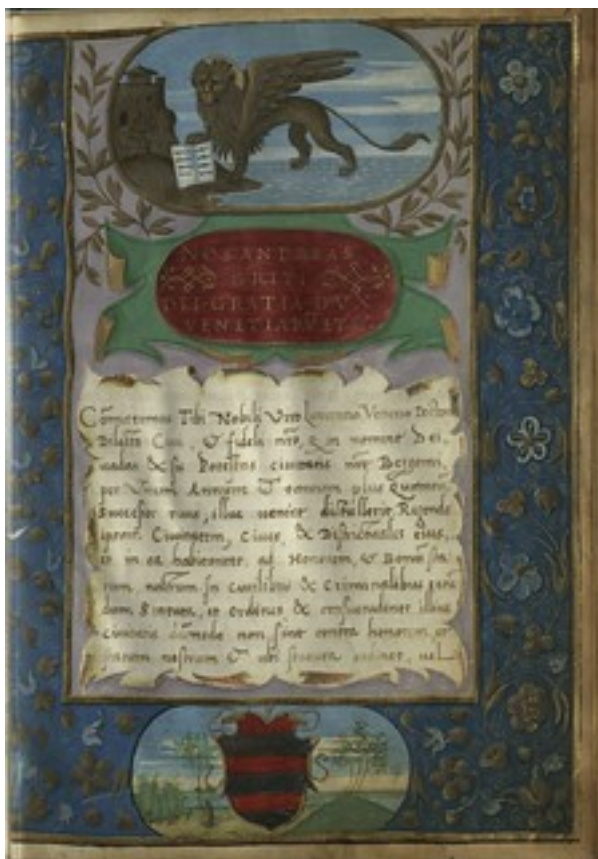 NOS ANDREAS
GRITI
DEI·GRATIA·DV
VENETIARV ET
Cōmittimus Tibi Nobili Viro Laurentio Venerio Doctori
Dilecto Civi, & fideli nr̄o, q, in nomine Dei,
vadas & sis Potestas civitatis nr̄e Bergomi,
per Vnum Annum & tantum plus quantum
Successor tuus, illuc venire distulerit, Regendo
Civitatem, Cives, &
in ea habitantes, ad Honorem, & Bonum
nostrum In civilibus & Criminalibus
dum Statuta, et ordines & consuetudines illius
civitatis dūmodo non sint contra honorem, et
nostrum & ubi statuta vel